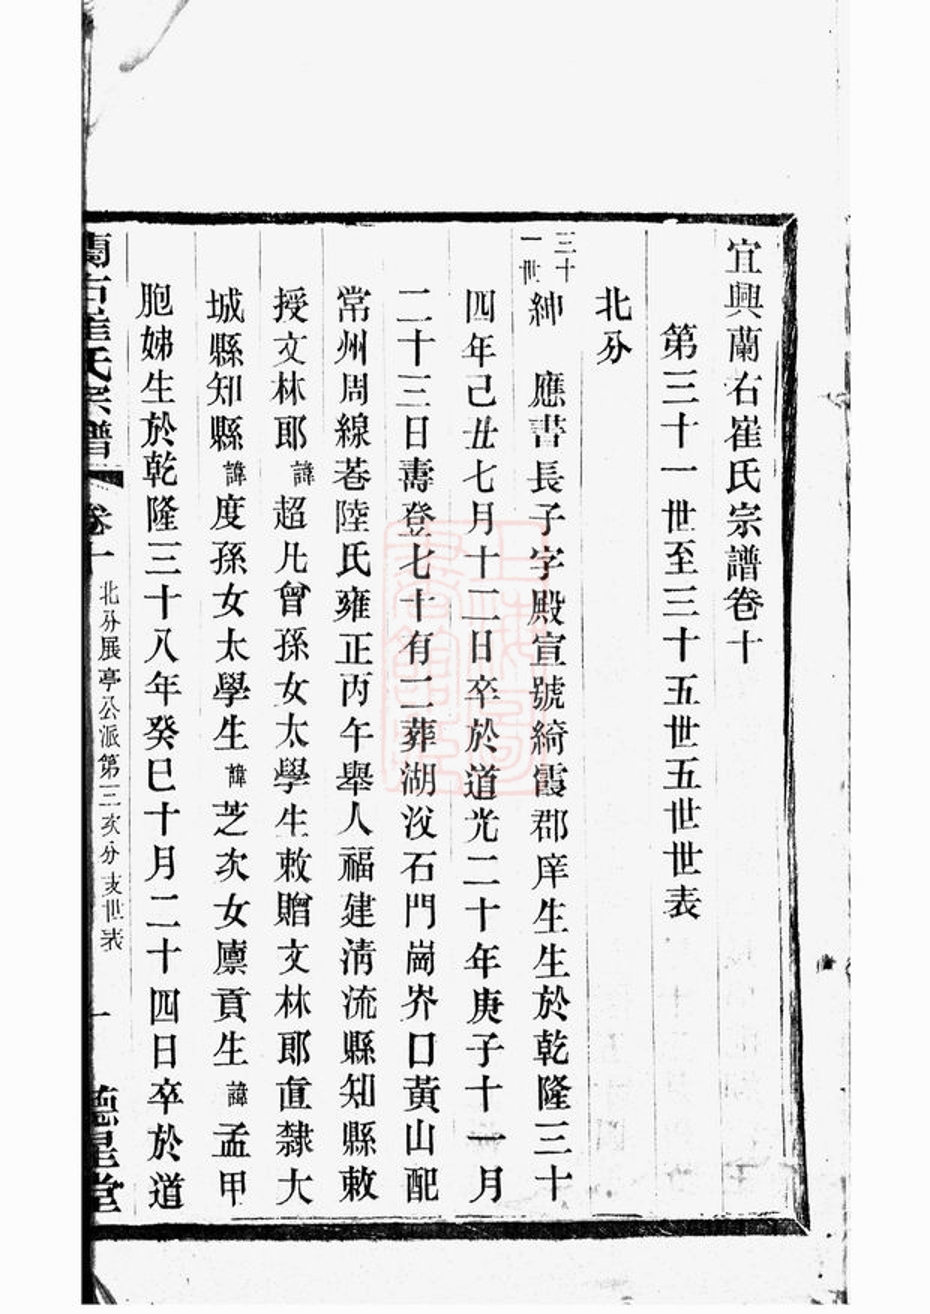 宜興蘭右崔氏宗譜卷十
第三十一世至三十五世五世世表
北分
三十一世
紳 應書長子字殿宣號綺霞郡庠生生於乾隆三十
四年己丑七月十二日卒於道光二十年庚子十一月
二十三日壽登七十有二葬湖㳇石門崗岕口黃山配
常州周線巷陸氏雍正丙午舉人福建淸流縣知縣敕
授文林郎諱超凡曾孫女太學生敕贈文林郎直隸大
城縣知縣諱度孫女太學生諱芝次女廩貢生諱孟甲
胞姊生於乾隆三十八年癸巳十月二十四日卒於道
蘭右崔氏宗譜 卷十 北分展亭公派第三次分支世表 一 德星堂